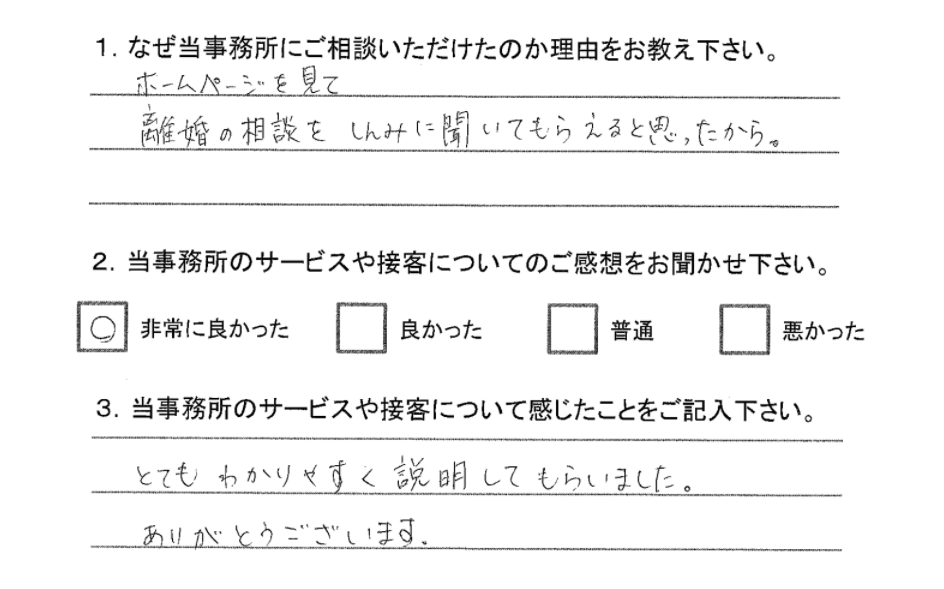 1. なぜ当事務所にご相談いただけたのか理由をお教え下さい。
ホームページを見て
離婚の相談を しんみに聞いてもらえると思ったから。
2. 当事務所のサービスや接客についてのご感想をお聞かせ下さい。
○ 非常に良かった 良かった 普通 悪かった
3. 当事務所のサービスや接客について感じたことをご記入下さい。
とても わかりやすく 説明してもらいました。
ありがとうございます.